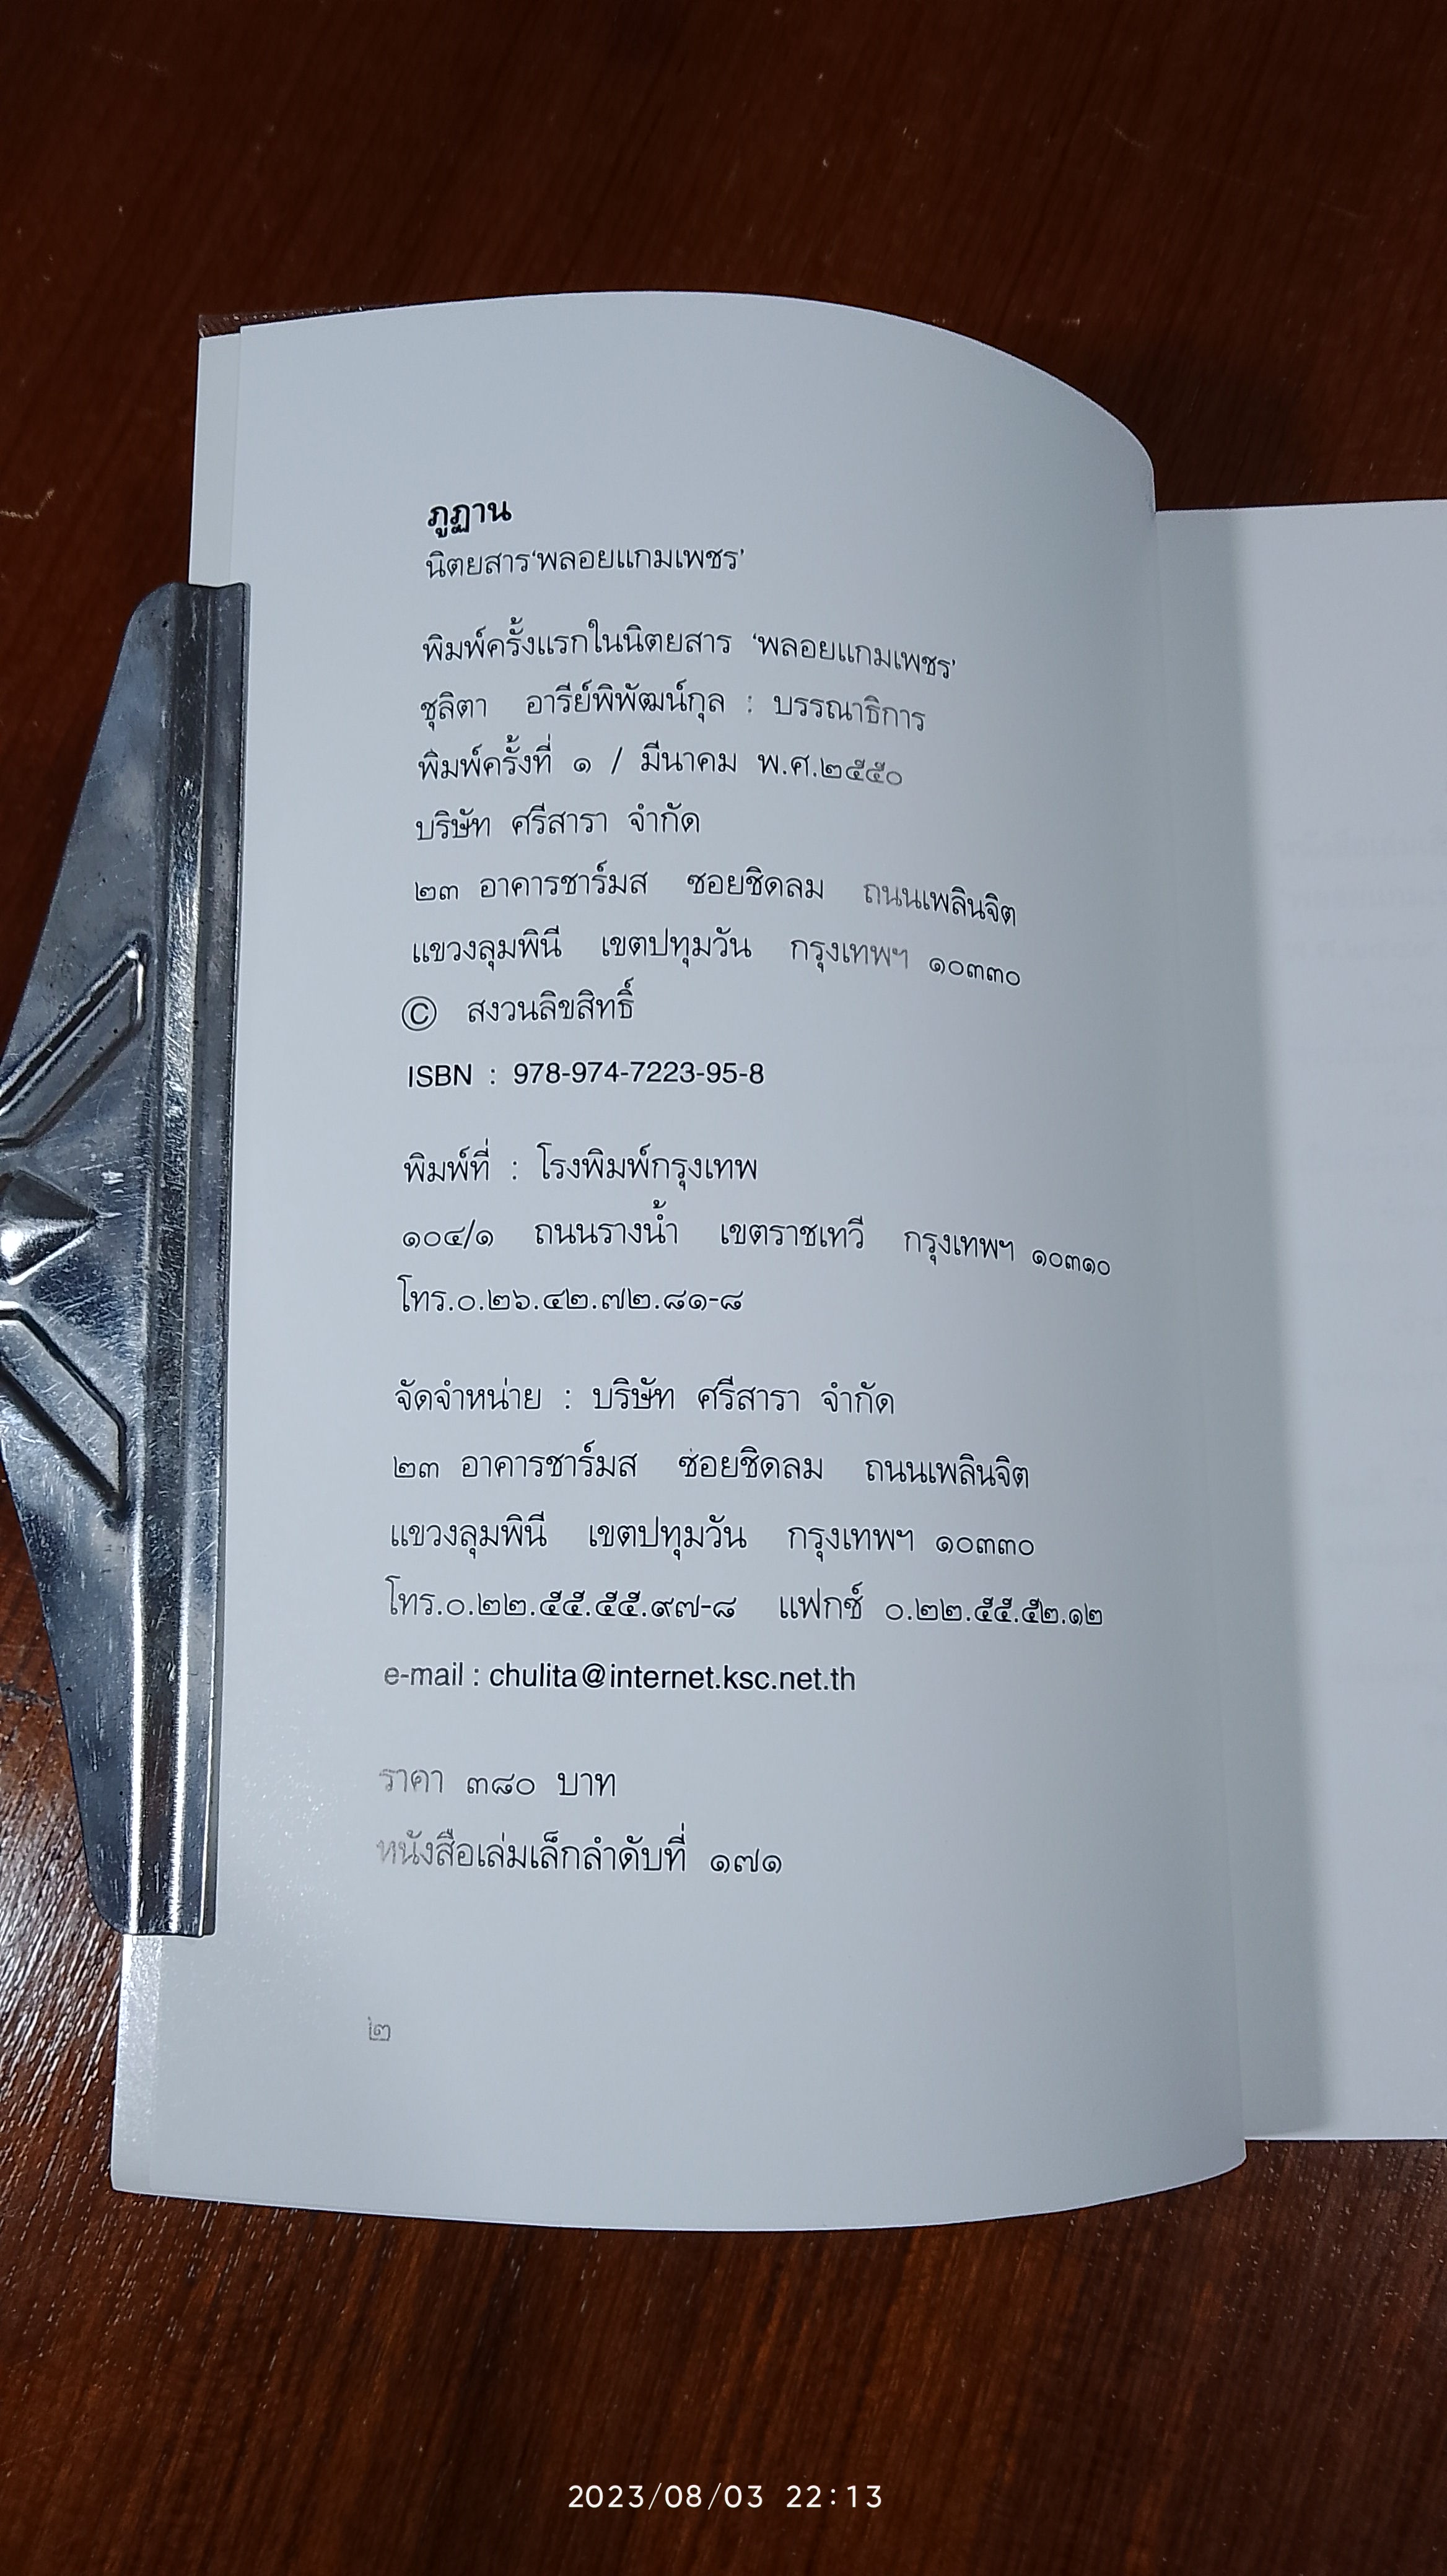 ภูฏาน
นิตยสาร‘พลอยแกมเพชร’
พิมพ์ครั้งแรกในนิตยสาร ‘พลอยแกมเพชร’
ชุลิตา อารีย์พิพัฒน์กุล : บรรณาธิการ
พิมพ์ครั้งที่ ๑ / มีนาคม พ.ศ.๒๕๕๐
บริษัท ศรีสารา จำกัด
๒๓ อาคารชาร์มส ซอยชิดลม ถนนเพลินจิต
แขวงลุมพินี เขตปทุมวัน กรุงเทพฯ ๑๐๓๓๐
© สงวนลิขสิทธิ์
ISBN : 978-974-7223-95-8
พิมพ์ที่ : โรงพิมพ์กรุงเทพ
๑๐๔/๑ ถนนรางน้ำ เขตราชเทวี กรุงเทพฯ ๑๐๓๑๐
โทร.๐.๒๖.๔๒.๗๒.๘๑-๘
จัดจำหน่าย : บริษัท ศรีสารา จำกัด
๒๓ อาคารชาร์มส ซ่อยชิดลม ถนนเพลินจิต
แขวงลุมพินี เขตปทุมวัน กรุงเทพฯ ๑๐๓๓๐
โทร.๐.๒๒.๕๕.๕๕.๙๗-๘ แฟกซ์ ๐.๒๒.๕๕.๕๒.๑๒
e-mail : chulita@internet.ksc.net.th
ราคา ๓๘๐ บาท
หนังสือเล่มเล็กลำดับที่ ๑๗๑
๒
2023/08/03 22:13